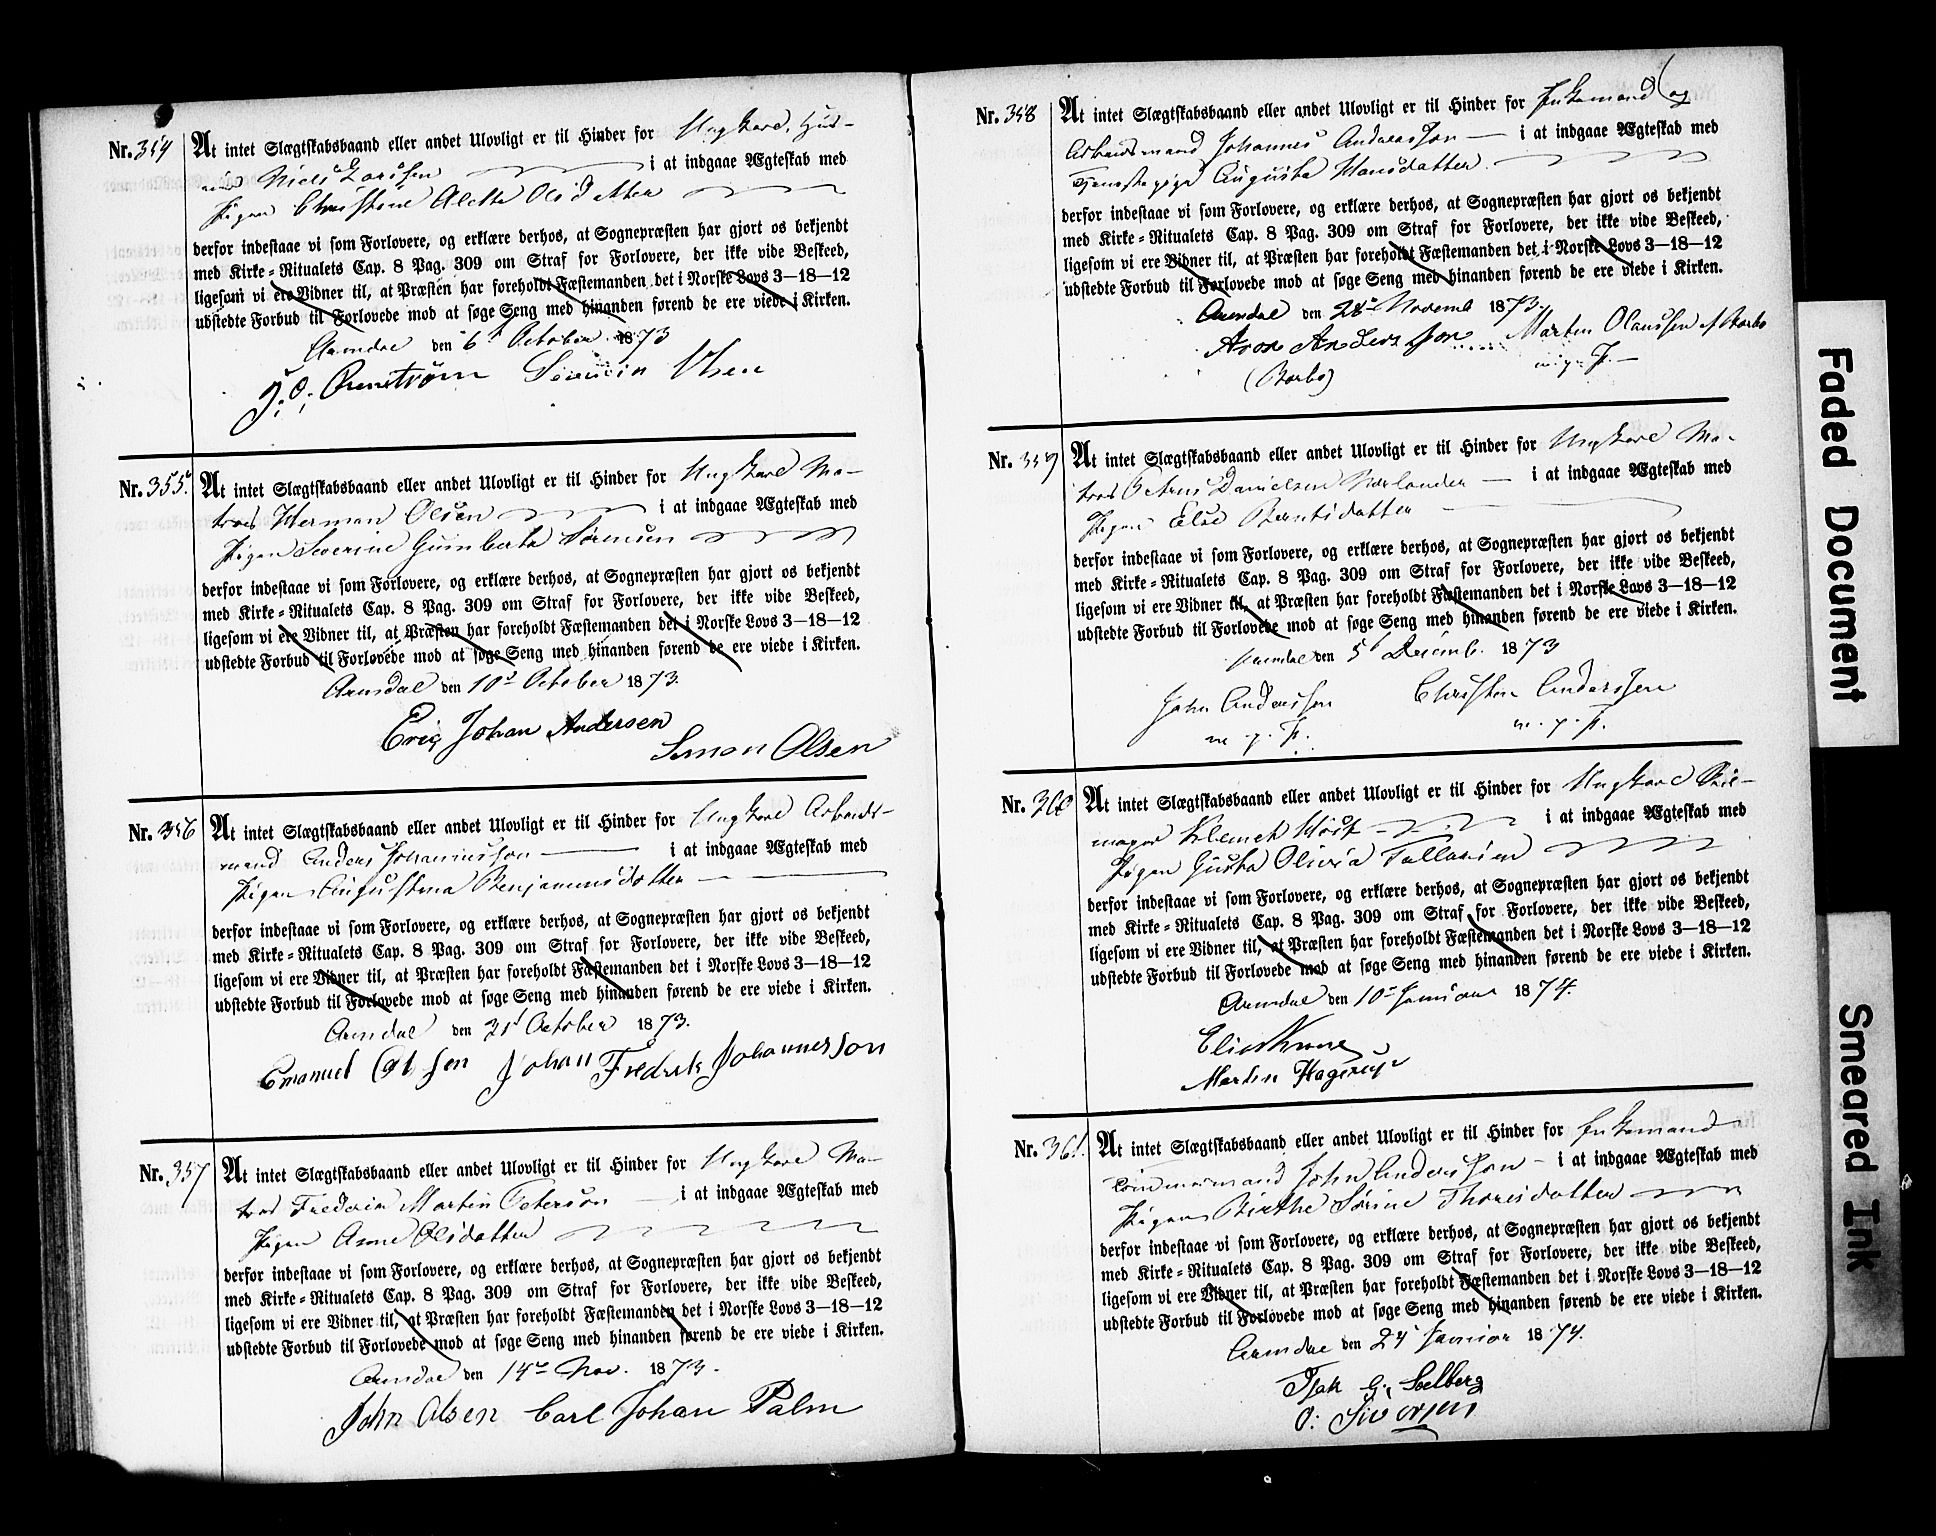 Nr. 354
At intet Slægtskabsbaand eller andet Ulovligt er til Hinder for Ungkarl, Hus-
Niels Larssen i at indgaae Ægteskab med
Pigen Christine Aletta Olsdatter
derfor indestaae vi som Forlovere, og erklære derhos, at Sognepræsten har gjort os bekjendt
med Kirke-Ritualets Cap. 8 Pag. 309 om Straf for Forlovere, der ikke vide Beskeed,
ligesom vi ere Vidner til, at Præsten har foreholdt Fæstemanden det i Norske Lovs 3—18—12
udstedte Forbud til Forlovede mod at søge Seng med hinanden førend de ere viede i Kirken.
Arendal den 6t October 1873
J. O. Arenstrøm Severin Olsen
Nr. 355.
At intet Slægtskabsbaand eller andet Ulovligt er til Hinder for Ungkarl Ma-
tros Herman Olsen i at indgaae Ægteskab med
Pigen Severine Gumberta Sørensen
derfor indestaae vi som Forlovere, og erklære derhos, at Sognepræsten har gjort os bekjendt
med Kirke-Ritualets Cap. 8 Pag. 309 om Straf for Forlovere, der ikke vide Beskeed,
ligesom vi ere Vidner til, at Præsten har foreholdt Fæstemanden det i Norske Lovs 3—18—12
udstedte Forbud til Forlovede mod at søge Seng med hinanden førend de ere viede i Kirken.
Arendal den 10d October 1873.
Eric Johan Andersen
Simon Olsen
Nr. 356
At intet Slægtskabsbaand eller andet Ulovligt er til Hinder for Ungkarl Arbeids-
mand Anders Johannesson i at indgaae Ægteskab med
Pigen Augustina Benjaminsdatter
derfor indestaae vi som Forlovere, og erklære derhos, at Sognepræsten har gjort os bekjendt
med Kirke-Ritualets Cap. 8 Pag. 309 om Straf for Forlovere, der ikke vide Beskeed,
ligesom vi ere Vidner til, at Præsten har foreholdt Fæstemanden det i Norske Lovs 3—18—12
udstedte Forbud til Forlovede mod at søge Seng med hinanden førend de ere viede i Kirken.
Arendal den 31d October 1873.
Emanuel Johan Fredrik Johannesson
Nr. 357
At intet Slægtskabsbaand eller andet Ulovligt er til Hinder for Ungkarl Ma-
tros Frederik Martin Peterson i at indgaae Ægteskab med
Pigen Anne Olsdatter
derfor indestaae vi som Forlovere, og erklære derhos, at Sognepræsten har gjort os bekjendt
med Kirke-Ritualets Cap. 8 Pag. 309 om Straf for Forlovere, der ikke vide Beskeed,
ligesom vi ere Vidner til, at Præsten har foreholdt Fæstemanden det i Norske Lovs 3—18—12
udstedte Forbud til Forlovede mod at søge Seng med hinanden førend de ere viede i Kirken.
Arendal den 14de Nov. 1873.
John Olsen Carl Johan Palm
Nr. 358
At intet Slægtskabsbaand eller andet Ulovligt er til Hinder for Enkemand og
Arbeidsmand Johannes Andersson i at indgaae Ægteskab med
Tjenestepige Augusta Hansdatter
derfor indestaae vi som Forlovere, og erklære derhos, at Sognepræsten har gjort os bekjendt
med Kirke-Ritualets Cap. 8 Pag. 309 om Straf for Forlovere, der ikke vide Beskeed,
ligesom vi ere Vidner til, at Præsten har foreholdt Fæstemanden det i Norske Lovs 3—18—12
udstedte Forbud til Forlovede mod at søge Seng med hinanden førend de ere viede i Kirken.
Arendal den 28de Novemb 1873.
Aron Andersson Martin Olaussen af Barbo
(Barbo) m. p. F.
Nr. 359
At intet Slægtskabsbaand eller andet Ulovligt er til Hinder for Ungkarl Ma-
tros Petrus Danielsen Norlander i at indgaae Ægteskab med
Pigen Else Berntsdatter
derfor indestaae vi som Forlovere, og erklære derhos, at Sognepræsten har gjort os bekjendt
med Kirke-Ritualets Cap. 8 Pag. 309 om Straf for Forlovere, der ikke vide Beskeed,
ligesom vi ere Vidner til, at Præsten har foreholdt Fæstemanden det i Norske Lovs 3—18—12
udstedte Forbud til Forlovede mod at søge Seng med hinanden førend de ere viede i Kirken.
Arendal den 5t Decemb. 1873
John Anderssen Christen Anderssen
m. p. F. m. p. F.
Nr. 360
At intet Slægtskabsbaand eller andet Ulovligt er til Hinder for Ungkarl Seil-
mager Klemet Høst i at indgaae Ægteskab med
Pigen Gusta Olivia Tallaksen
derfor indestaae vi som Forlovere, og erklære derhos, at Sognepræsten har gjort os bekjendt
med Kirke-Ritualets Cap. 8 Pag. 309 om Straf for Forlovere, der ikke vide Beskeed,
ligesom vi ere Vidner til, at Præsten har foreholdt Fæstemanden det i Norske Lovs 3—18—12
udstedte Forbud til Forlovede mod at søge Seng med hinanden førend de ere viede i Kirken.
Arendal den 10de Januar 1874.
Elias
Martin Hagerup
Nr. 361.
At intet Slægtskabsbaand eller andet Ulovligt er til Hinder for Enkemand
Tømmermand John Andersson i at indgaae Ægteskab med
Pigen Birthe Sørine Thoresdatter
derfor indestaae vi som Forlovere, og erklære derhos, at Sognepræsten har gjort os bekjendt
med Kirke-Ritualets Cap. 8 Pag. 309 om Straf for Forlovere, der ikke vide Beskeed,
ligesom vi ere Vidner til, at Præsten har foreholdt Fæstemanden det i Norske Lovs 3—18—12
udstedte Forbud til Forlovede mod at søge Seng med hinanden førend de ere viede i Kirken.
Arendal den 24 Januar 1874.
Isak G. Solberg
O. Siversen
Faded Document
Smeared Ink